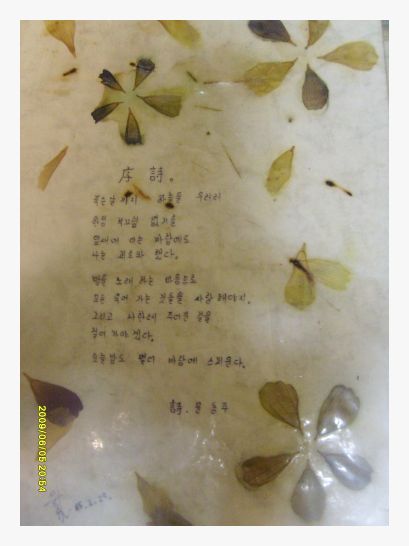 序 詩。
죽는날 까지 하늘을 우러러
한점 부끄럼 없기를
잎새에 이는 바람에도
나는 괴로와 했다.
별을 노래 하는 마음으로
모든 죽어 가는 것들을 사랑 해야지.
그리고 나한테 주어진 길을
걸어 가야 겠다.
오늘밤도 별이 바람에 스치운다.
詩. 윤 동주
2009/06/05 20:54